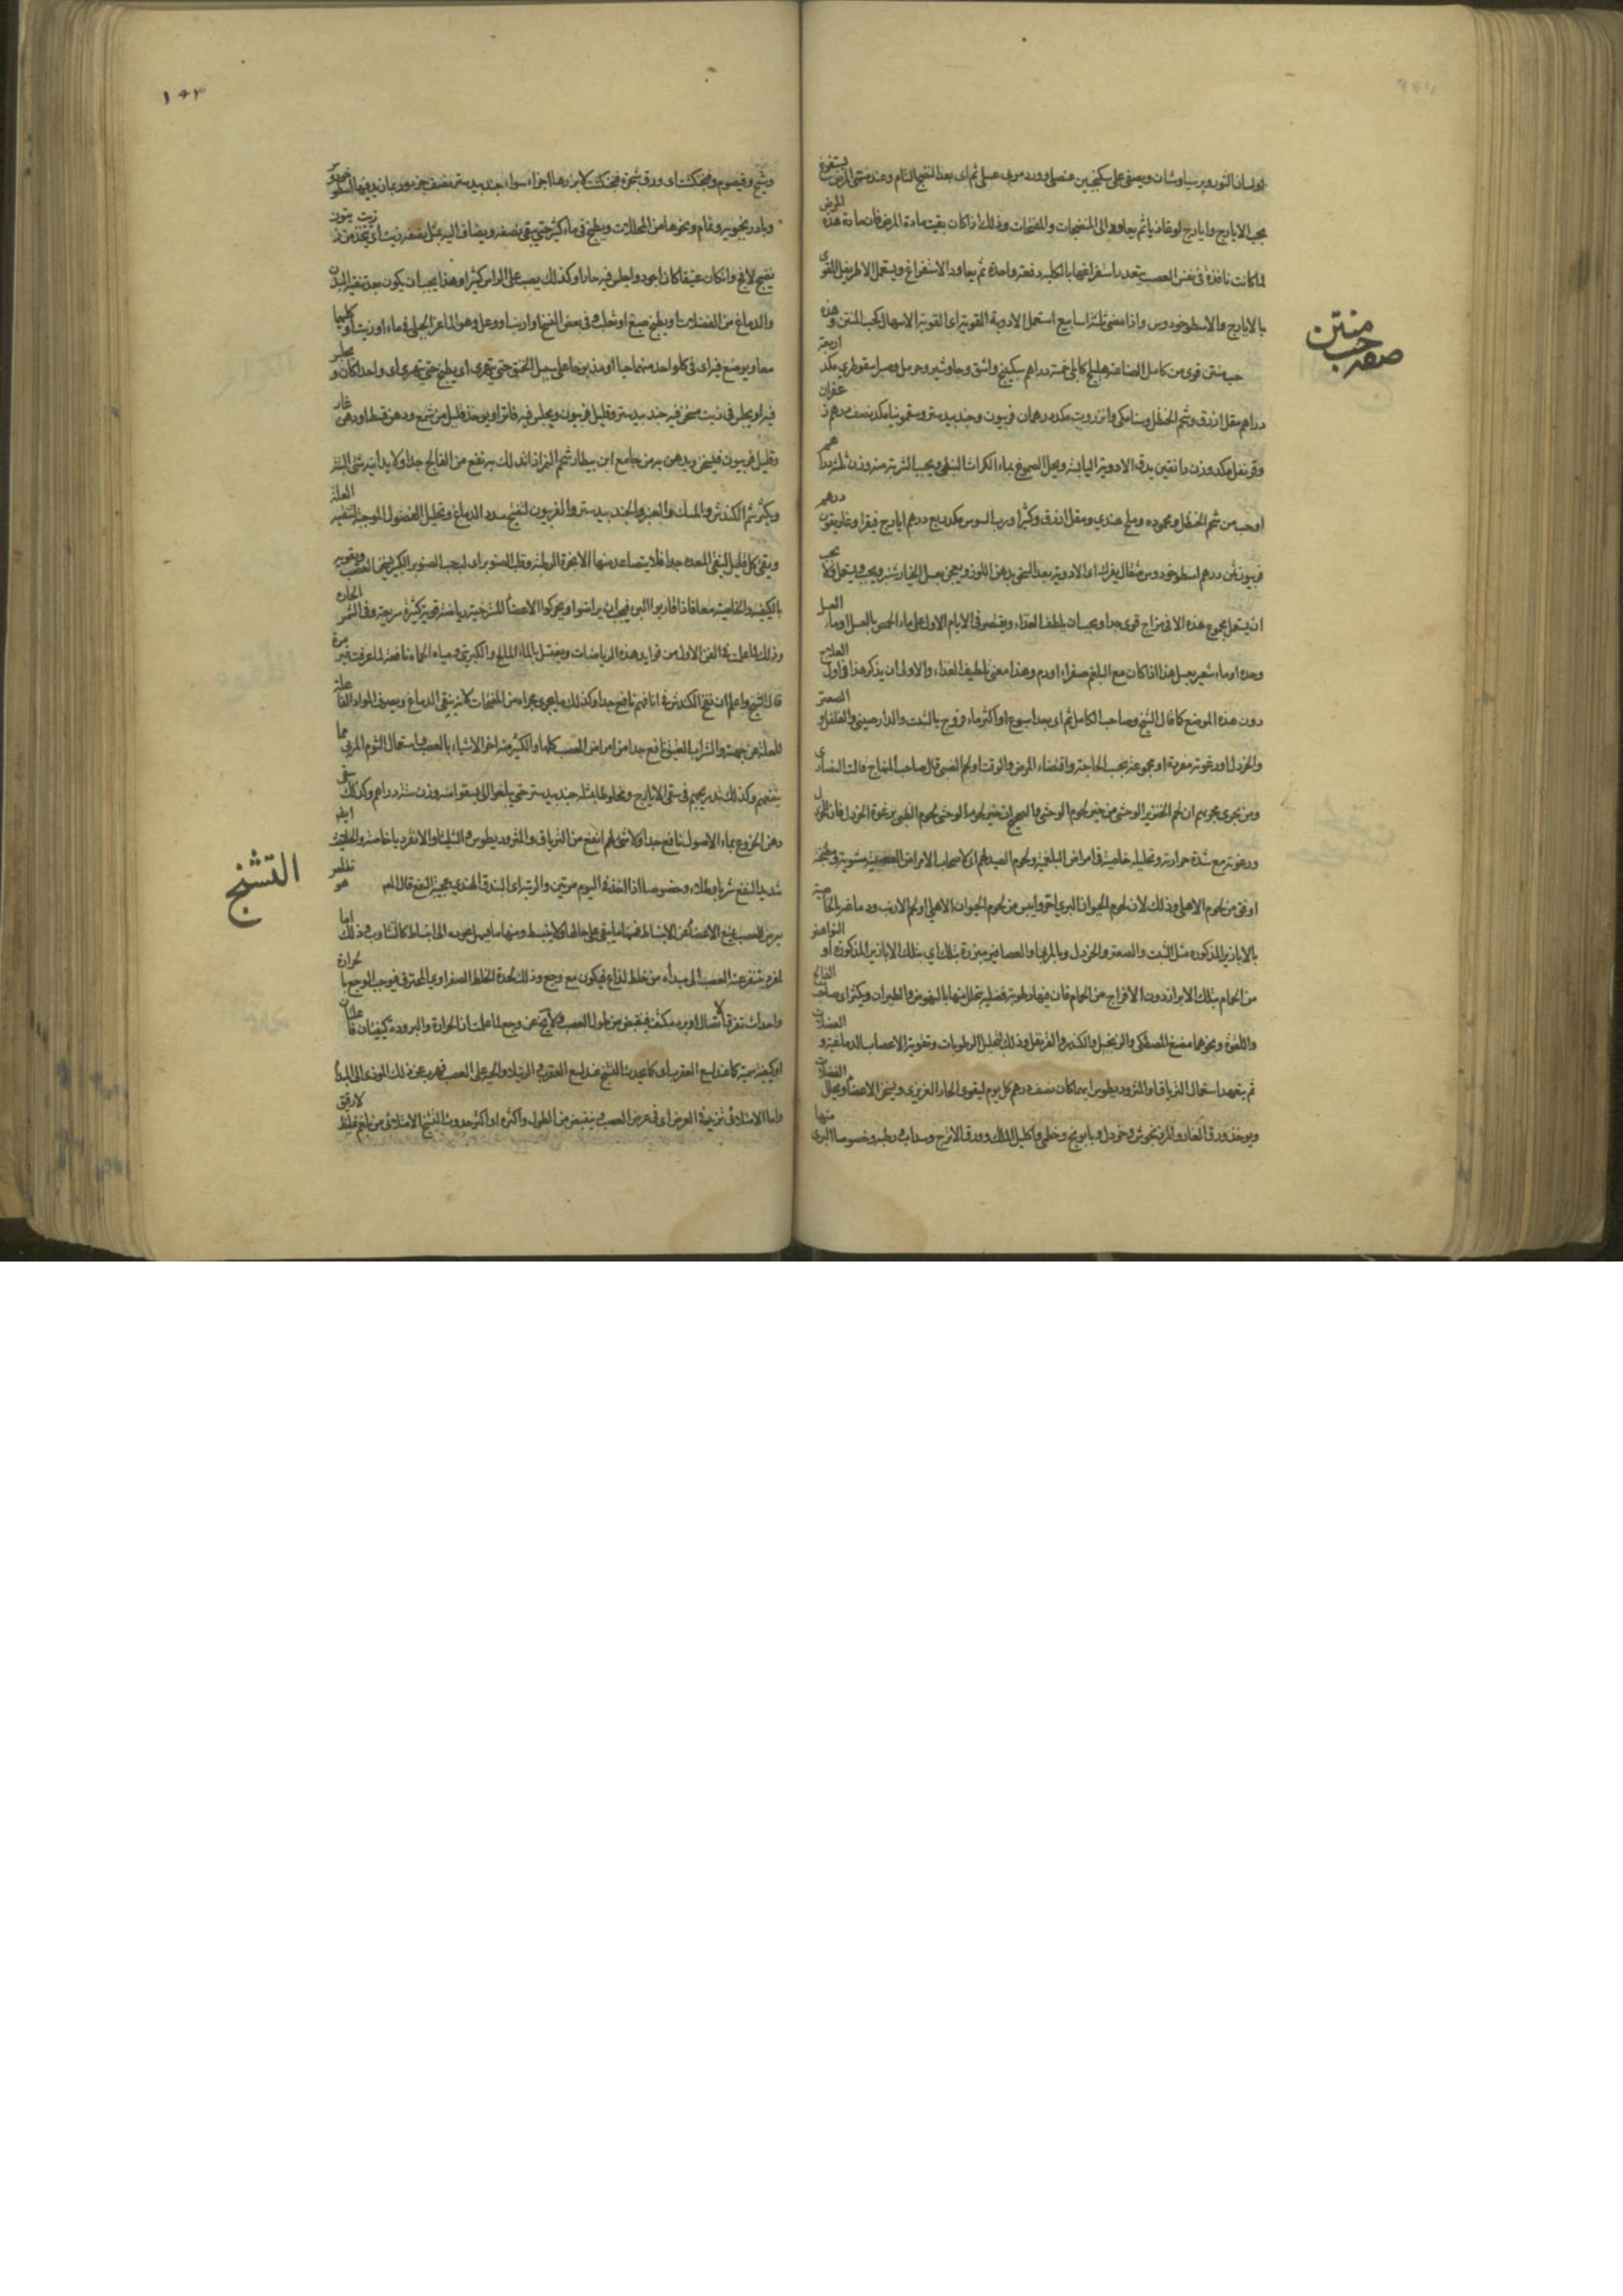 اولسان الثور وبرسياوشان ويسقى على سكنجبين عنصلى وورد مربى عسلى ثم اى بعد النضج التام وعند منتهى المرض يستفرغ
بحب الايارج وايارج لوغاذيا ثم يعاود الى المنضجات والملطفات وذلك اذا كان بقيت مادة المرض فان مادة هذه المرض
لما كانت نافذة فى نفس العصب يتعذر استفراغها بالكلية دفعة واحدة ثم يعاود الاستفراغ ويستعمل الاطريفل المقوى
بالايارج والاسطوخودوس واذا مضى ثلثة اسابيع استعمل الادوية القوية اى القوية الاسهال كحب المنتن وهذه
صفة حب منتن
حب منتن قوى من كامل الصناعة هليلج كابلى خمسة دراهم سكبينج واشق وجاوشير وحرمل وصبر اسقوطرى مكد اربعة
دراهم مقل ازرق وشحم الحنظل وسنا مكى وانزروت مكد درهمان فربيون وجندبيدستر وسقمونيا مكد نصف درهم زعفران
وقرنفل مكد وزن دانقين يدق الادوية اليابسة ويحل الصموغ بماء الكراث النبطى ويحبب الشربة منه وزن ثلثة دراهم
او حب من شحم الحنظل ومحموده وملح هندى ومقل ازرق وكثيرا ورب السوس مكد ربع درهم ايارج فيقرا وغاريقون درهم
فربيون ثمن درهم اسطوخودوس مثقال يفرك اى الادوية بعد السحق بدهن اللوز ويعجن بعسل الخيارشنبر ويحبب ويستعمل
ان يستعمل مجموع هذه الا فى مزاج قوى جدا ويجب ان يلطف الغذاء ويقتصر فى الايام الاول على ماء الحمص بالعسل او ماء العسل
وحده او ماء شعير بعسل هذا اذا كان مع البلغم صفراء او دم وهذا معنى تلطيف الغذاء والاولى ان يذكر هذا فى اول العلاج
دون هذه الموضع كما قال الشيخ وصاحب الكامل ثم اى بعد اسبوع او اكثر ماء فروج بالشبت والدارصينى والفلفل والصعتر
والخردل او رغوته مفردة او مجموعة بحسب الحاجة واقتضاء المرض والوقت او لحم القنبر قال صاحب المنهاج قالت النصارى
ومن يجرى مجريهم ان لحم الخنزير الوحشى من خير لحوم الوحشى والصحيح ان خير لحوم الوحشى لحوم الظبى برغوة الخردل فان الخردل
ورغوته مع شدة حرارته وتحليله خاصية فى امراض البلغمية ولحوم الصيد لهم اى لاصحاب الامراض العصبية مشوية ومطبخة
اوفق من لحوم الاهلى وذلك لان لحوم الحيوان البرى احر وايبس من لحوم الحيوان الاهلى او لحم الارنب ودماغه بالخاصية
بالابازير المذكوره مثل الشبت والصعتر والخردل وبالمرى او العصافير مبزرة بتلك اى بتلك الابازير المذكورة او النواهض
من الحمام بتلك الابزار دون الافراج من الحمام فان فيها رطوبة فضلية تحلل منها بالنهوض والطيران ويكثر اى صاحب الفالج
واللقوة ونحوهما مضغ المصطكى والزنجبيل والكندر والقرنفل وذلك لتحليل الرطوبات وتقوية الاعصاب الدماغية والعضلات
ثم يتعهد استعمال الترياق او المثروديطوس ايهما كان نصف درهم كل يوم ليقوى الحار الغريزى ويسخن الاعضاء ويحلل الفضلات
ويوخذ ورق الغار والمرزنجوش وخردل وبابونج وخطمى واكليل الملك وورق الاترج وسداب رطبه وخصوصا البرى منها
١٤٣
وشيح وقيصوم وفنجنكشت اى ورق شجرة فنجنكشت لا بزرها اجزاء سواء جندبيدستر نصف جزء وربما زيد فيها اسطوخودوس
وبادرنجبويه ونمام ونحوها من المحللات ويطبخ فى ماء كثير حتى يبقى نصفه ويضاف اليه مثل نصفه زيت اى يتخذ من زيتون
نضيج لا فج وان كان عتيقا كان اجود واجلس فيه حارا وكذلك يصب على الراس كثيرا وهذا يجب ان يكون بعد تنقية البدن
والدماغ من الفضلات او يطبخ ضبع او ثعلب وفى بعض النسخ او ارنب او وعل وهو الماعز الجبلى فى ماء او زيت او كليهما
معا ويوضع فيه اى فى كل واحد منهما حيا او مذبوحا على سبيل التخنيق حتى يتهرى اى يطبخ حتى يتهرى اى واحد كان ويجلس
فيه او يجلس فى زيت مسخن فيه جندبيدستر وقليل فربيون ويجلس فيه فاترا ويوخذ قليل من شمع ودهن قسط او دهن غار
وقليل فربيون فليسخن ويدهن به من جامع ابن بيطار شحم النمر اذا اندلك به نفع من الفالج جدا ولا يدانيه شئ البتة
ويكثر شم الكندش والمسك والعنبر والجندبيدستر والفربيون لتفتيح سدد الدماغ وتحليل الفضول الموجبة للعلة
ويقئ كل قليل لتنقى المعده جدا فلا يتصاعد منها الابخرة الرطبة وقلب الصنوبر اى لب حب الصنوبر الكبير يسخن العصب ويقويه
بالكيفية والخاصية معا فاذا قاربوا البرء فيجب ان يراضوا ويحركوا الاعضاء المسترخية رياضة قوية كثيرة سريعة وفى الشمس الحاره
وذلك لما علمت فى الفن الاول من فوايد هذه الرياضات ويغتسل بالماء المالح والكبريتى ومياه الحماة نافعة لما عرفت غير مرة
قال الشيخ واعلم ان نفخ الكندش فى انافهم نافع جدا وكذلك ما يجرى مجراه من المعطسات لانه ينقى الدماغ ويصرف المواد الفاعلة
للعلة عن جهته والشراب العتيق نافع جدا من امراض العصب كلها والكثير منه اضر الاشياء بالعصب واستعمال الثوم المربى مما
ينفعهم وكذلك تدريجهم فى سقى الايارج ومخلوطا بمثله جندبيدستر حتى يبلغوا الى يسقوا منه وزن ستة دراهم وكذلك سقى
دهن الخروع بماء الاصول نافع جدا ولا شئ لهم انفع من الترياق والمثروديطوس والشليثا والانقرديا خاصة والحلتيت ايضا
شديد النفع شربا وطلاء وخصوصا اذا اخذ فى اليوم مرتين والرتة اى البندق الهندى عجيبة النفع قال المص
التشنج
يعرض للعصب يمنع الاعضاء عن الانبساط فمنها ما يبقى على حالها ولا ينبسط ومنها ما يسهل عوده الى الانبساط كالتثاوب وذلك اما
لموذ ينفر عنه العصب الى مبدأه من خلط لذاع فيكون مع وجع وذلك لحدة الخلط الصفراوى المحترق فيوجب الوجع بالحرارة
واحداث تفرق اتصال او برد مكثف فينقبض من طول العصب ولا يخ عن وجع لما علمت ان الحرارة والبرودة كيفيتان فاعلتان
او كيفية سمية كما عند لسع العقرب اى كما يحدث التشنج عند لسع العقرب والرتيلا والحية على العصب فيهرب عن ذلك الموذى الى المبدأ
واما الامتلائى تزيد فى العرض اى فى عرض العصب وينقص من الطول واكثره اى اكثر حدوث التشنج الامتلائى من بلغم غليظ لا رقيق